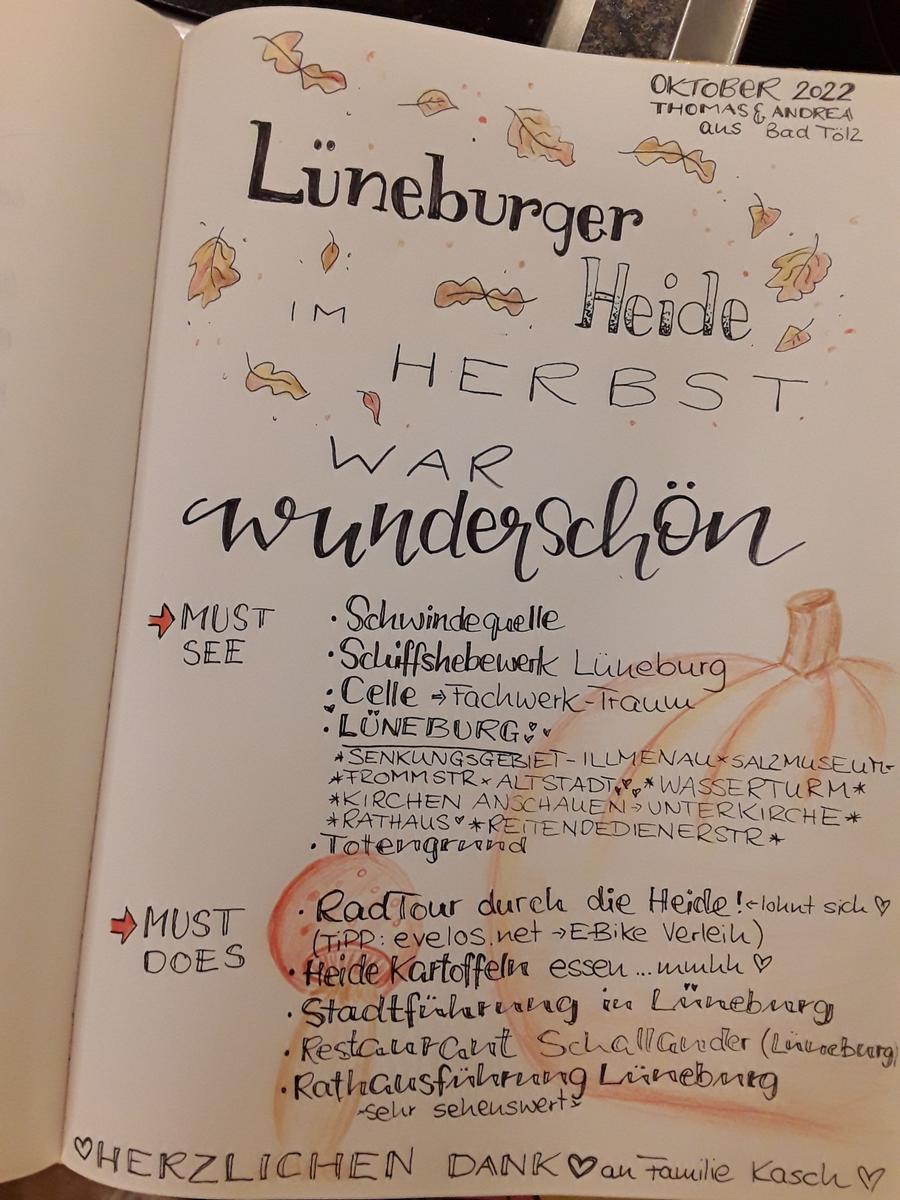 OKTOBER 2022
THOMAS & ANDREA
aus Bad Tölz
Lüneburger
Heide
IM
HERBST
WAR
wunderschön
→ MUST SEE
· Schwindequelle
· Schiffshebewerk Lüneburg
· Celle ⇒ Fachwerk-Traum
· LÜNEBURG: ♥♥
*SENKUNGSGEBIET-ILLMENAU*SALZMUSEUM-
*FROMMSTR*ALTSTADT♥♥*WASSERTURM*
*KIRCHEN ANSCHAUEN→UNTERKIRCHE*
*RATHAUS♥*REITENDEDIENERSTR*
· Totengrund
→ MUST DOES
· RadTour durch die Heide! ← lohnt sich ♡
(TiPP: evelos.net → E-Bike Verleih)
· Heide Kartoffeln essen ... mmhh ♡
· Stadtführung in Lüneburg
· Restaurant Schallander (Lüneburg)
· Rathausführung Lüneburg
~sehr sehenswert~
♡HERZLICHEN DANK♡ an Familie Kasch ♡